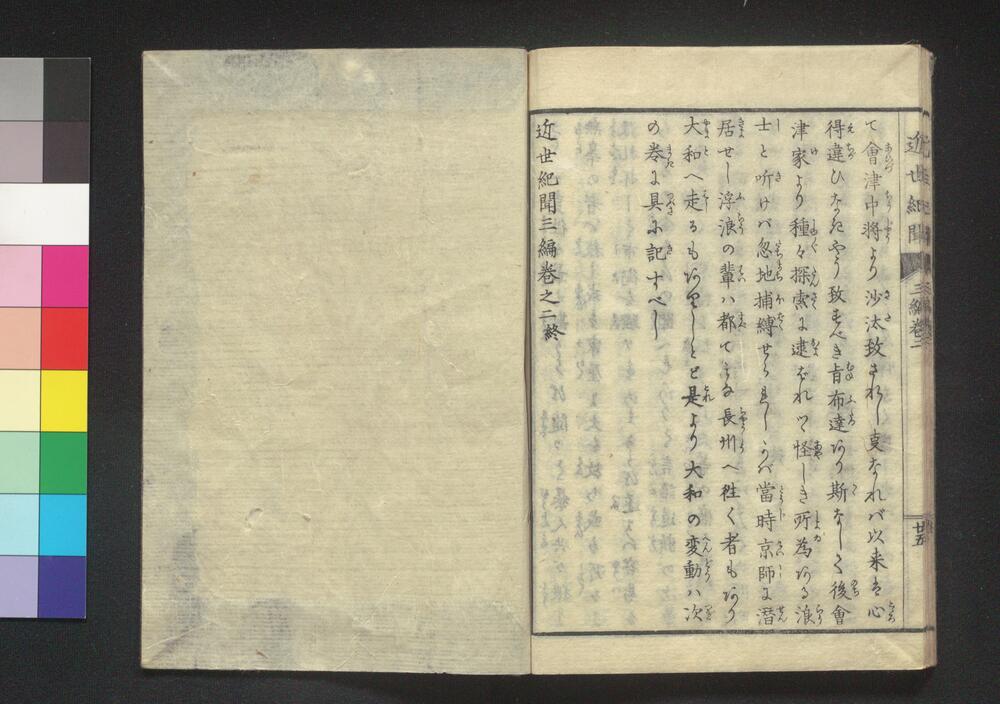 近世紀聞
三編巻二
廿五
て會津中将より沙汰致されし㕝なれバ以来は心
得違ひなきやう致すべき旨布達ありて斯なして後會
津家より種々探索に逮ばれつゝ怪しき所為ある浪
士と听けバ忽地捕縛せられしかバ當時京師に潜
居せし浮浪の輩ハ都て長州へ往く者もあり
大和へ走るもありしとぞ是より大和の変動ハ次
の巻に具に記すべし
近世紀聞三編巻之二終